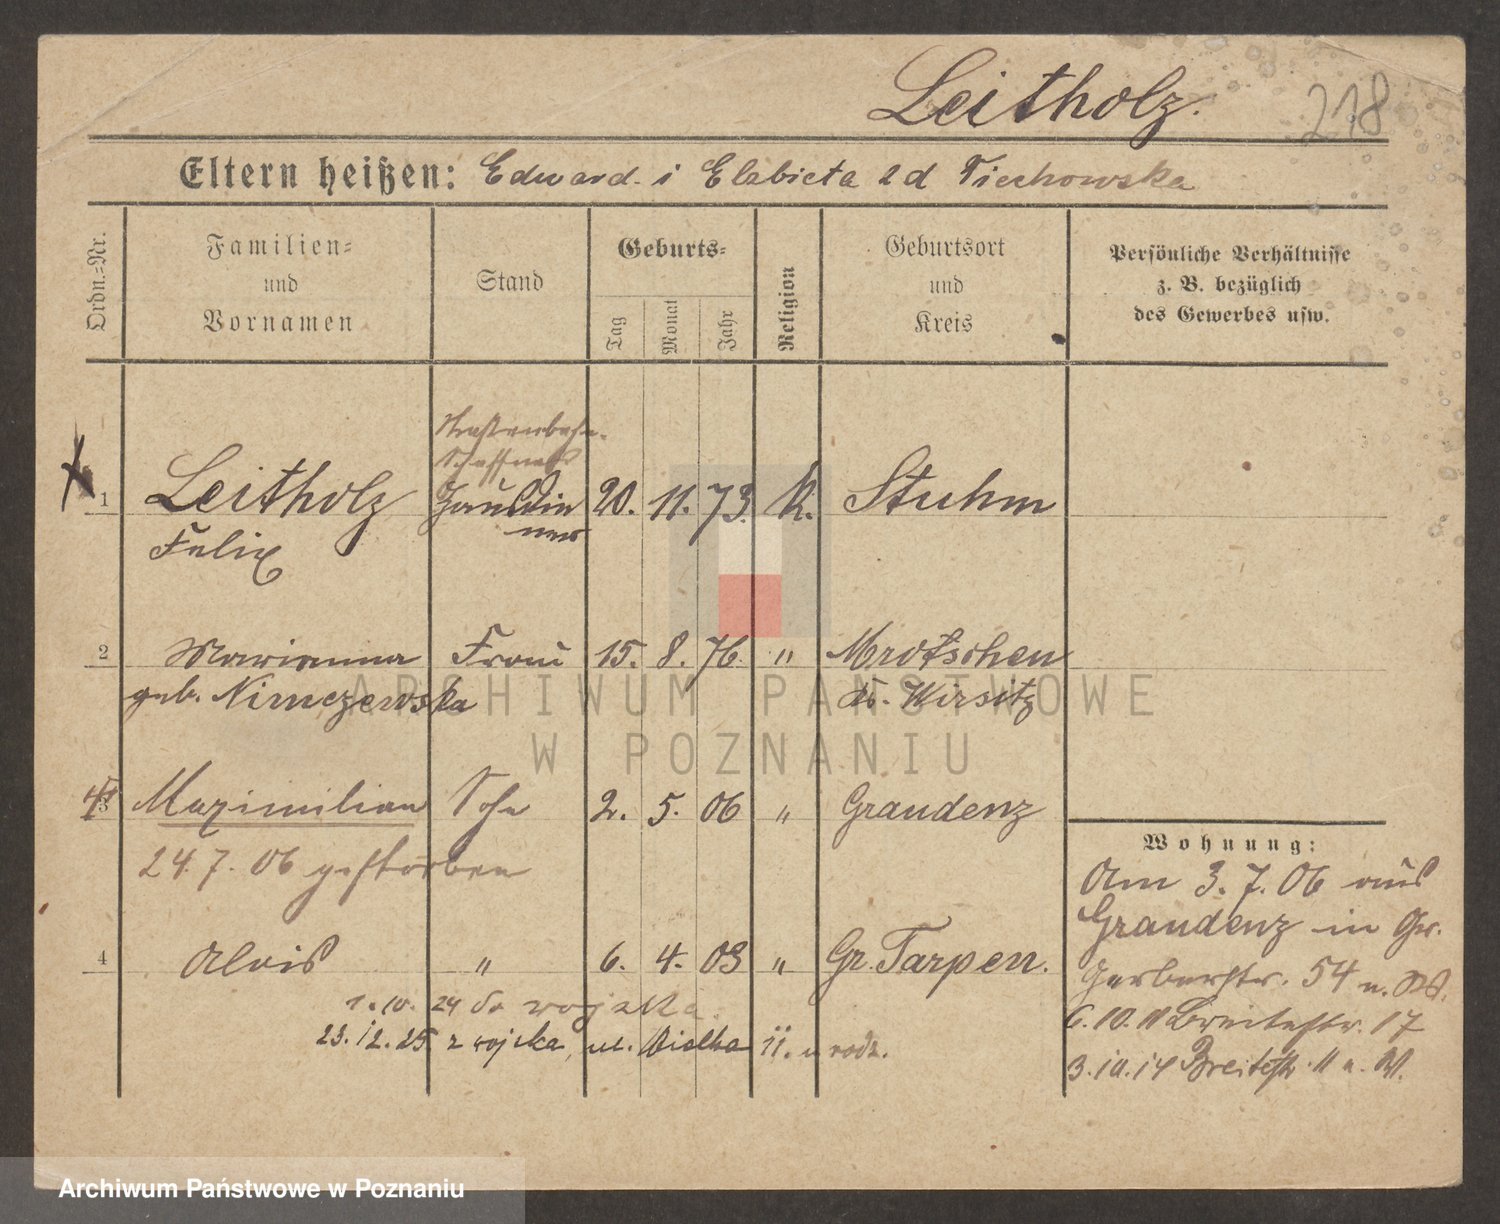 Leitholz.
218
Eltern heißen: Edward i Elzbieta 2d Tiechowska
Ordn.-Nr.
Familien-
und
Vornamen
Stand
Geburts-
Tag
Monat
Jahr
Religion
Geburtsort
und
Kreis
Persönliche Verhältnisse
z. B. bezüglich
des Gewerbes usw.
Straßenbahn-
Schaffner
1 Leitholz Hausdie 20. 11. 73. k. Stuhm
ner
Felix
2 Marianna Frau 15. 8. 76. " Mrotschen
geb. Nimczewska Kr. Wirsitz
3 Maximilian Sohn 2. 5. 06 " Graudenz
24. 7. 06 gestorben
4 Alois " 6. 4. 03 " Gr. Tarpen.
1.10. 24 do wojska.
23.12.25 z wojska, ul. Wielka 11. u rodz.
Wohnung:
Am 3. 7. 06 aus
Graudenz in Gr.
Gerberstr. 54 n. W.
6.10.11 Breitestr. 17
3.10.14 Breitestr. 11 n. W.
ARCHIWUM PAŃSTWOWE
W POZNANIU
Archiwum Państwowe w Poznaniu